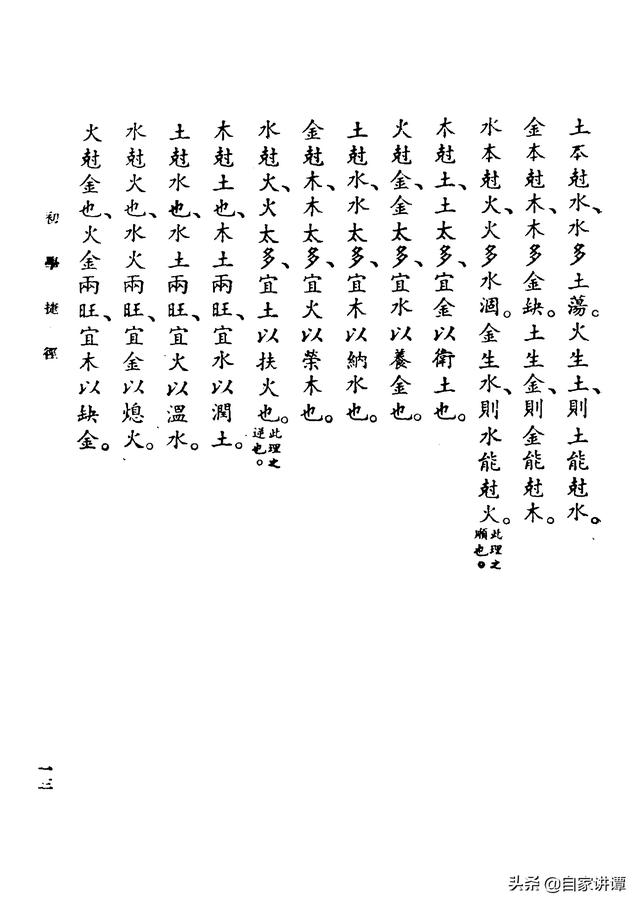 土本尅水、水多土蕩。火生土、則土能尅水。
金本尅木、木多金缺。土生金、則金能尅木。
水本尅火、火多水涸。金生水、則水能尅火。此理之順也。
木尅土、土太多、宜金以衛土也。
火尅金、金太多、宜水以養金也。
土尅水、水太多、宜木以納水也。
金尅木、木太多、宜火以榮木也。
水尅火、火太多、宜土以扶火也。此理之逆也。
木尅土也、木土兩旺、宜水以潤土。
土尅水也、水土兩旺、宜火以溫水。
水尅火也、水火兩旺、宜金以熄火。
火尅金也、火金兩旺、宜木以缺金。
初學捷徑
一三
头条 @自家讲谭